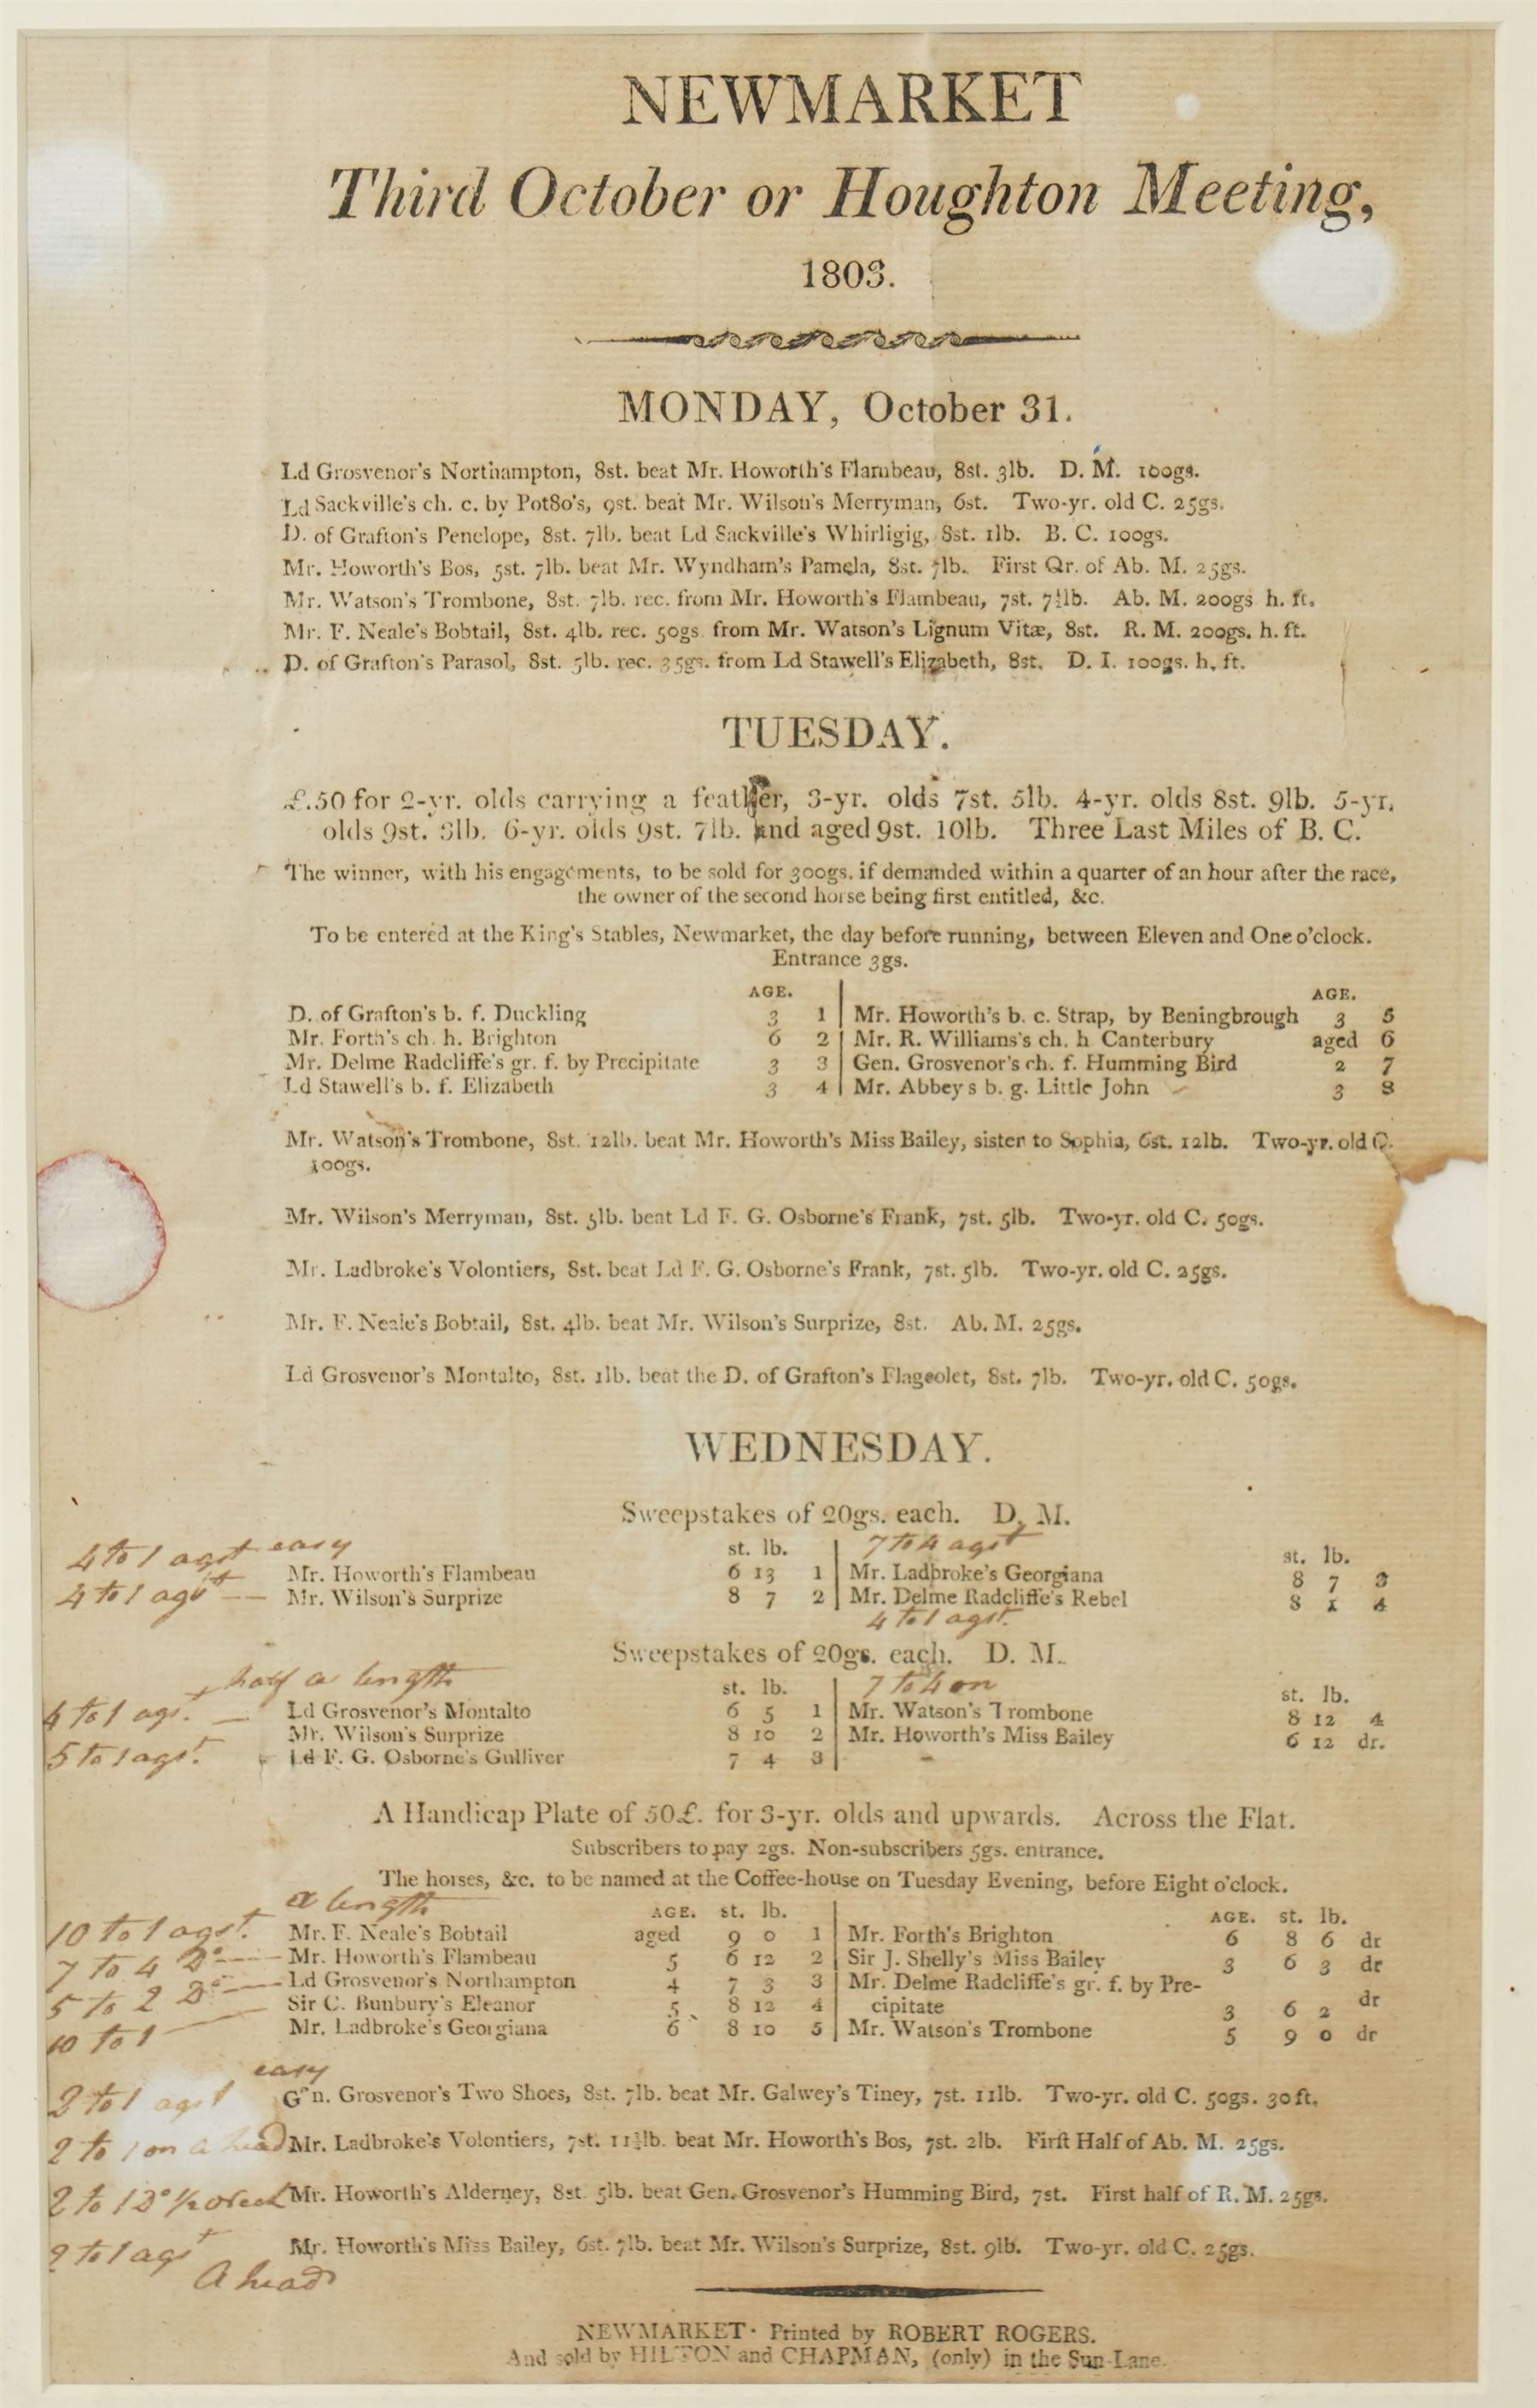 NEWMARKET
Third October or Houghton Meeting,
1803.
MONDAY, October 31.
Ld Grosvenor's Northampton, 8st. beat Mr. Howorth's Flambeau, 8st. 3lb. D. M. 100gs.
Ld Sackville's ch. c. by Pot8o's, 9st. beat Mr. Wilson's Merryman, 6st. Two-yr. old C. 25gs.
D. of Grafton's Penelope, 8st. 7lb. beat Ld Sackville's Whirligig, 8st. 1lb. B. C. 100gs.
Mr. Howorth's Bos, 5st. 7lb. beat Mr. Wyndham's Pamela, 8st. 7lb. First Qr. of Ab. M. 25gs.
Mr. Watson's Trombone, 8st. 7lb. rec. from Mr. Howorth's Flambeau, 7st. 7½lb. Ab. M. 200gs h. ft.
Mr. F. Neale's Bobtail, 8st. 4lb. rec. 50gs. from Mr. Watson's Lignum Vitæ, 8st. R. M. 200gs. h. ft.
D. of Grafton's Parasol, 8st. 5lb. rec. 35gs. from Ld Stawell's Elizabeth, 8st. D. I. 100gs. h. ft.
TUESDAY.
£.50 for 2-yr. olds carrying a feather, 3-yr. olds 7st. 5lb. 4-yr. olds 8st. 9lb. 5-yr.
olds 9st. 3lb. 6-yr. olds 9st. 7lb. and aged 9st. 10lb. Three Last Miles of B. C.
The winner, with his engagements, to be sold for 300gs. if demanded within a quarter of an hour after the race,
the owner of the second horse being first entitled, &c.
To be entered at the King's Stables, Newmarket, the day before running, between Eleven and One o'clock.
Entrance 3gs.
AGE. AGE.
D. of Grafton's b. f. Duckling 3 1 Mr. Howorth's b. c. Strap, by Beningbrough 3 5
Mr. Forth's ch. h. Brighton 6 2 Mr. R. Williams's ch. h Canterbury aged 6
Mr. Delme Radcliffe's gr. f. by Precipitate 3 3 Gen. Grosvenor's ch. f. Humming Bird 2 7
Ld Stawell's b. f. Elizabeth 3 4 Mr. Abbeys b. g. Little John 3 8
Mr. Watson's Trombone, 8st. 12lb. beat Mr. Howorth's Miss Bailey, sister to Sophia, 6st. 12lb. Two-yr. old C.
100gs.
Mr. Wilson's Merryman, 8st. 5lb. beat Ld F. G. Osborne's Frank, 7st. 5lb. Two-yr. old C. 50gs.
Mr. Ladbroke's Volontiers, 8st. beat Ld F. G. Osborne's Frank, 7st. 5lb. Two-yr. old C. 25gs.
Mr. F. Neale's Bobtail, 8st. 4lb. beat Mr. Wilson's Surprize, 8st. Ab. M. 25gs.
Ld Grosvenor's Montalto, 8st. 1lb. beat the D. of Grafton's Flageolet, 8st. 7lb. Two-yr. old C. 50gs.
WEDNESDAY.
Sweepstakes of 20gs. each. D. M.
easy st. lb. 7 to 4 agst st. lb.
4 to 1 agst Mr. Howorth's Flambeau 6 13 1 Mr. Ladbroke's Georgiana 8 7 3
4 to 1 agst Mr. Wilson's Surprize 8 7 2 Mr. Delme Radcliffe's Rebel 8 1 4
4 to 1 agst.
Sweepstakes of 20gs. each. D. M.
half a length st. lb. 7 to 4 on st. lb.
4 to 1 agst. Ld Grosvenor's Montalto 6 5 1 Mr. Watson's Trombone 8 12 4
Mr. Wilson's Surprize 8 10 2 Mr. Howorth's Miss Bailey 6 12 dr.
5 to 1 agst. Ld F. G. Osborne's Gulliver 7 4 3
A Handicap Plate of 50£. for 3-yr. olds and upwards. Across the Flat.
Subscribers to pay 2gs. Non-subscribers 5gs. entrance.
The horses, &c. to be named at the Coffee-house on Tuesday Evening, before Eight o'clock.
a length AGE. st. lb. AGE. st. lb.
10 to 1 agst. Mr. F. Neale's Bobtail aged 9 0 1 Mr. Forth's Brighton 6 8 6 dr
7 to 4 Do Mr. Howorth's Flambeau 5 6 12 2 Sir J. Shelly's Miss Bailey 3 6 3 dr
5 to 2 Do Ld Grosvenor's Northampton 4 7 3 3 Mr. Delme Radcliffe's gr. f. by Pre-
10 to 1 Sir C. Bunbury's Eleanor 5 8 12 4 cipitate 3 6 2 dr
Mr. Ladbroke's Georgiana 6 8 10 5 Mr. Watson's Trombone 5 9 0 dr
easy
2 to 1 agst Gen. Grosvenor's Two Shoes, 8st. 7lb. beat Mr. Galwey's Tiney, 7st. 11lb. Two-yr. old C. 50gs. 30ft.
2 to 1 on a head Mr. Ladbroke's Volontiers, 7st. 11½lb. beat Mr. Howorth's Bos, 7st. 2lb. First Half of Ab. M. 25gs.
2 to 1 Do Mr. Howorth's Alderney, 8st. 5lb. beat Gen. Grosvenor's Humming Bird, 7st. First half of R. M. 25gs.
2 to 1 agst Mr. Howorth's Miss Bailey, 6st. 7lb. beat Mr. Wilson's Surprize, 8st. 9lb. Two-yr. old C. 25gs.
A head
NEWMARKET: Printed by ROBERT ROGERS.
And sold by HILTON and CHAPMAN, (only) in the Sun-Lane.